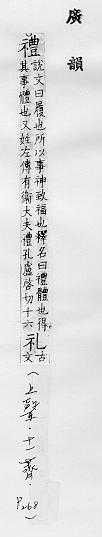 廣韻
禮
說文曰履也所以事神致福也釋名曰禮體也得
其事體也又姓左傳有衛大夫禮孔盧啓切十六
礼
古文
(上聲·十一薺·P268)